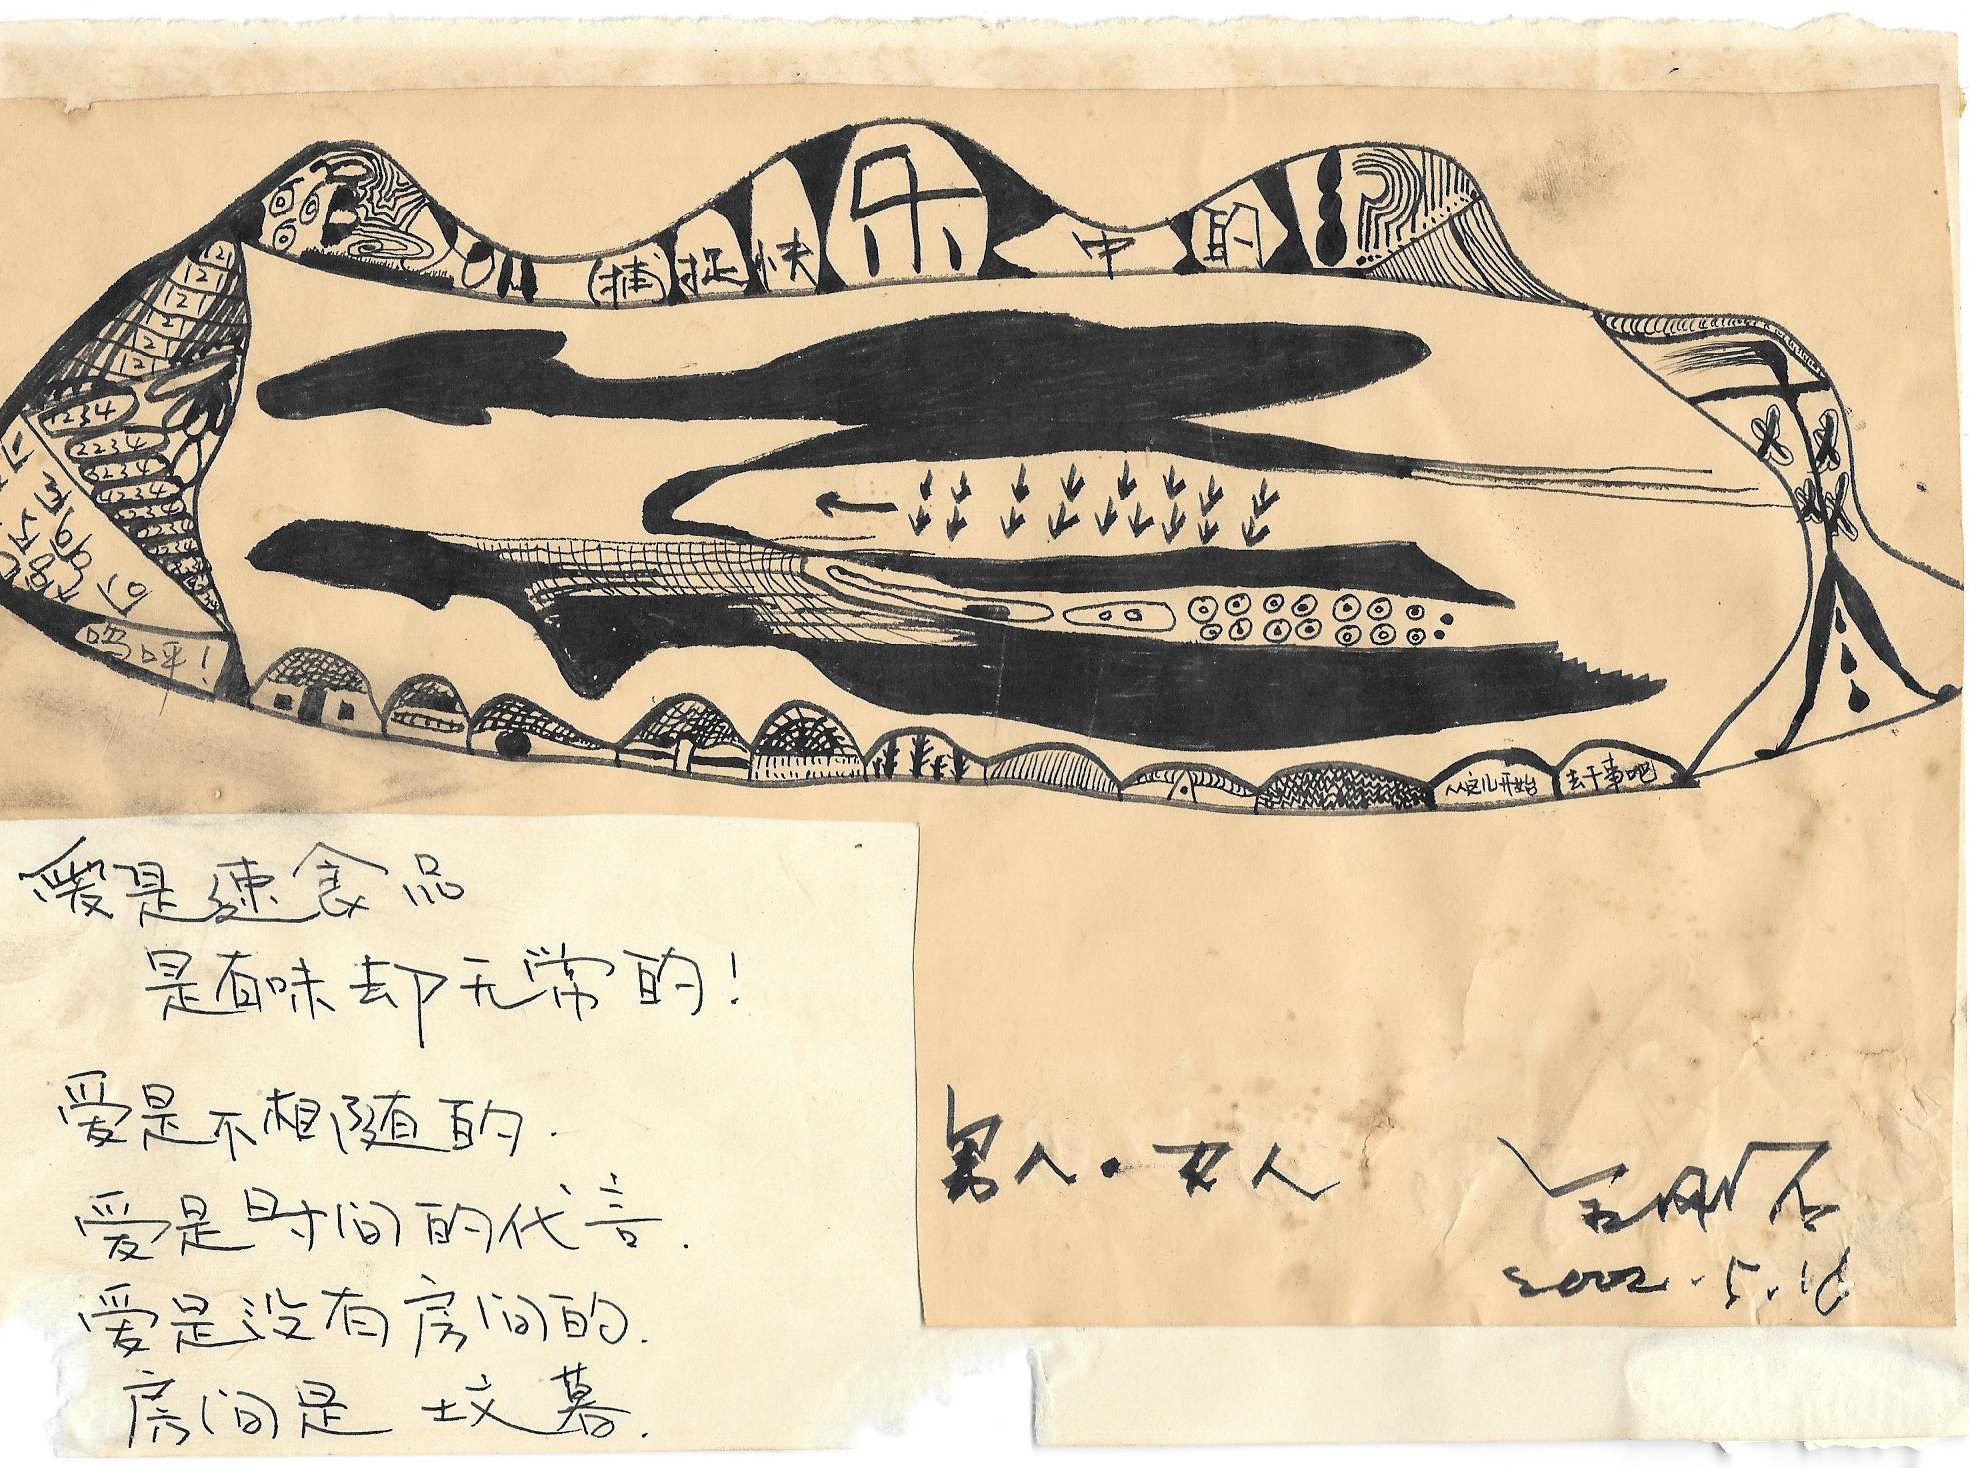 捕捉快乐中的
121
121
121
121
121
121
1234
2234
3234
4234
5234
6234
呜呼!
从这儿开始
去干事吧
爱是速食品
是有味却无常的!
爱是不相随的.
爱是时间的代言.
爱是没有房间的.
房间是坟墓.
男人·女人
2002.5.18